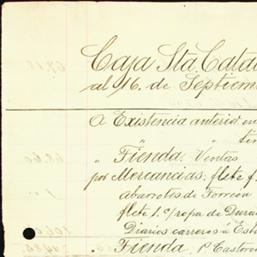 Caja Sta. Cata
al 16. de Septiem
A Existencia anterior en
" "
" Tienda: Ventas
por Mercancias: flete f.
abarrotes de Torreon
flete 1. c/ ropa de Dura
Diarios carreros a Est
" Tienda, P. Castor